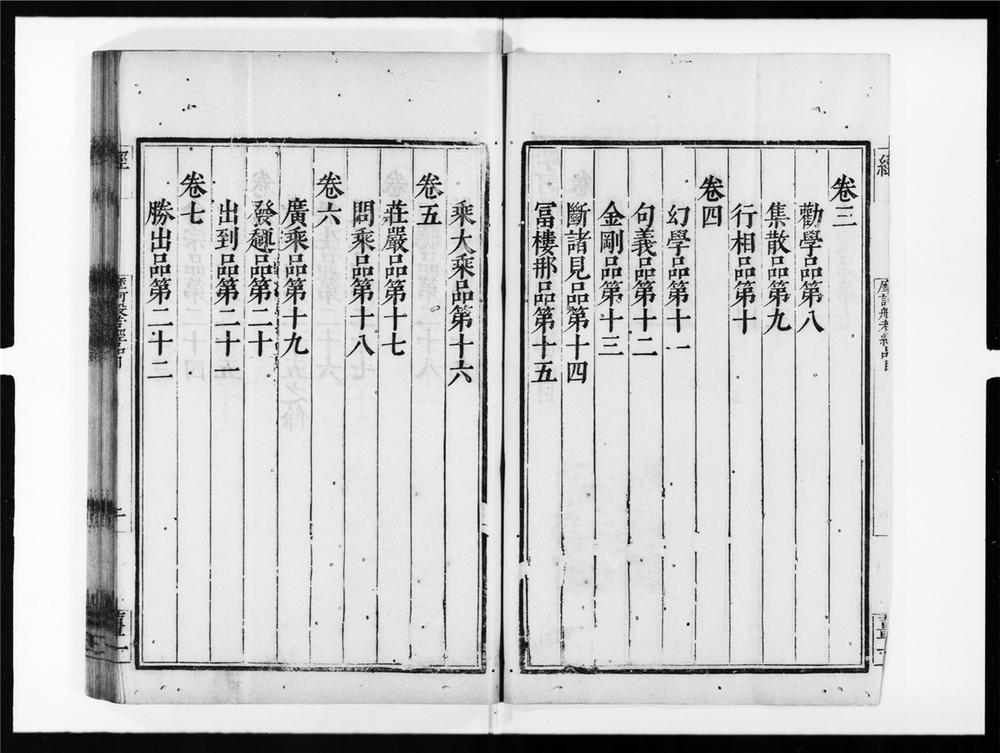 卷三
勸學品第八
集散品第九
行相品第十
卷四
幻學品第十一
句義品第十二
金剛品第十三
斷諸見品第十四
冨樓那品第十五
乘大乘品第十六
卷五
莊嚴品第十七
問乘品第十八
卷六
廣乘品第十九
發趣品第二十
出到品第二十一
卷七
勝出品第二十二